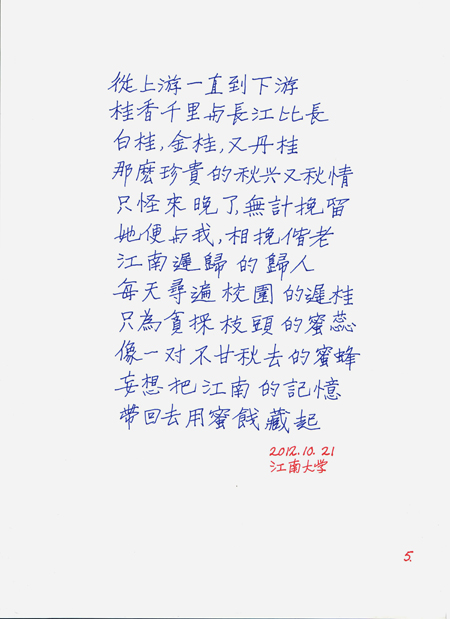 從上游一直到下游
桂香千里与長江比長
白桂,金桂,又丹桂
那麼珍貴的秋兴又秋情
只怪來晚了,無計挽留
她便与我,相挽偕老
江南遲歸的歸人
每天尋遍校園的遲桂
只為貪採枝頭的蜜蕊
像一对不甘秋去的蜜蜂
妄想把江南的記憶
帶回去用蜜餞藏起
2012.10.21
江南大学
5.